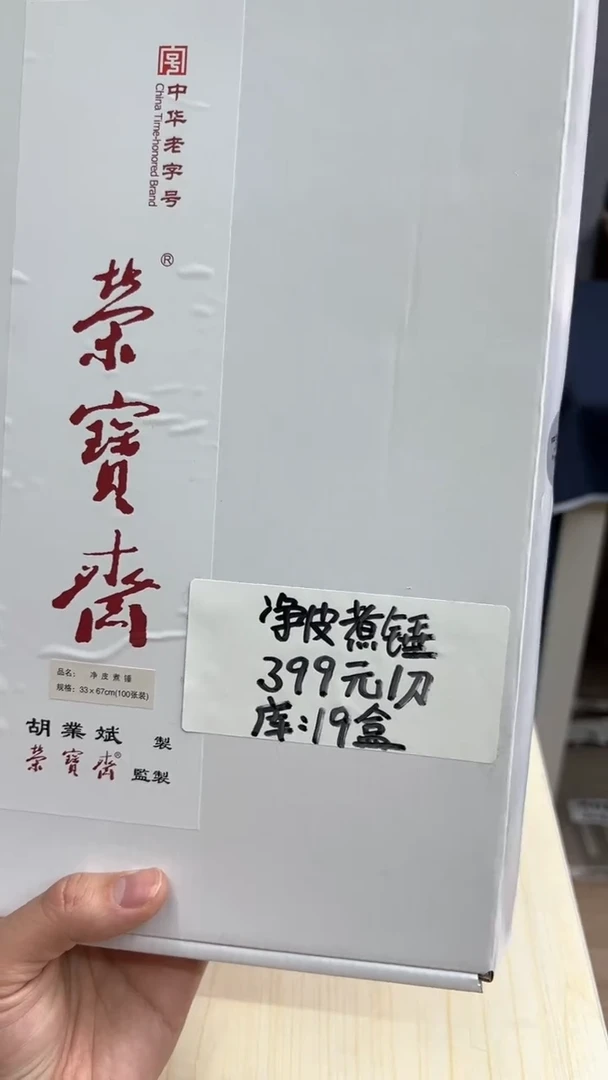 中华老字号
China Time-honored Brand
荣寶斋®
品名: 净皮煮锤
规格: 33×67cm(100张装)
胡業斌 製
荣寶斋® 監製
净皮煮锤
399元/刀
库:19盒